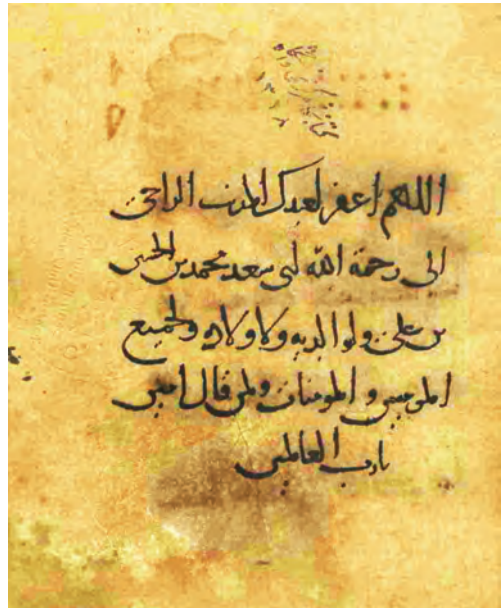 اللهم اغفر لعبدك المذنب الراجي
الى رحمة الله ابى سعد محمد بن الحسن
بن على ولوالديه ولاولاده ولجميع
المومنين والمومنات ولمن قال امين
يارب العالمين